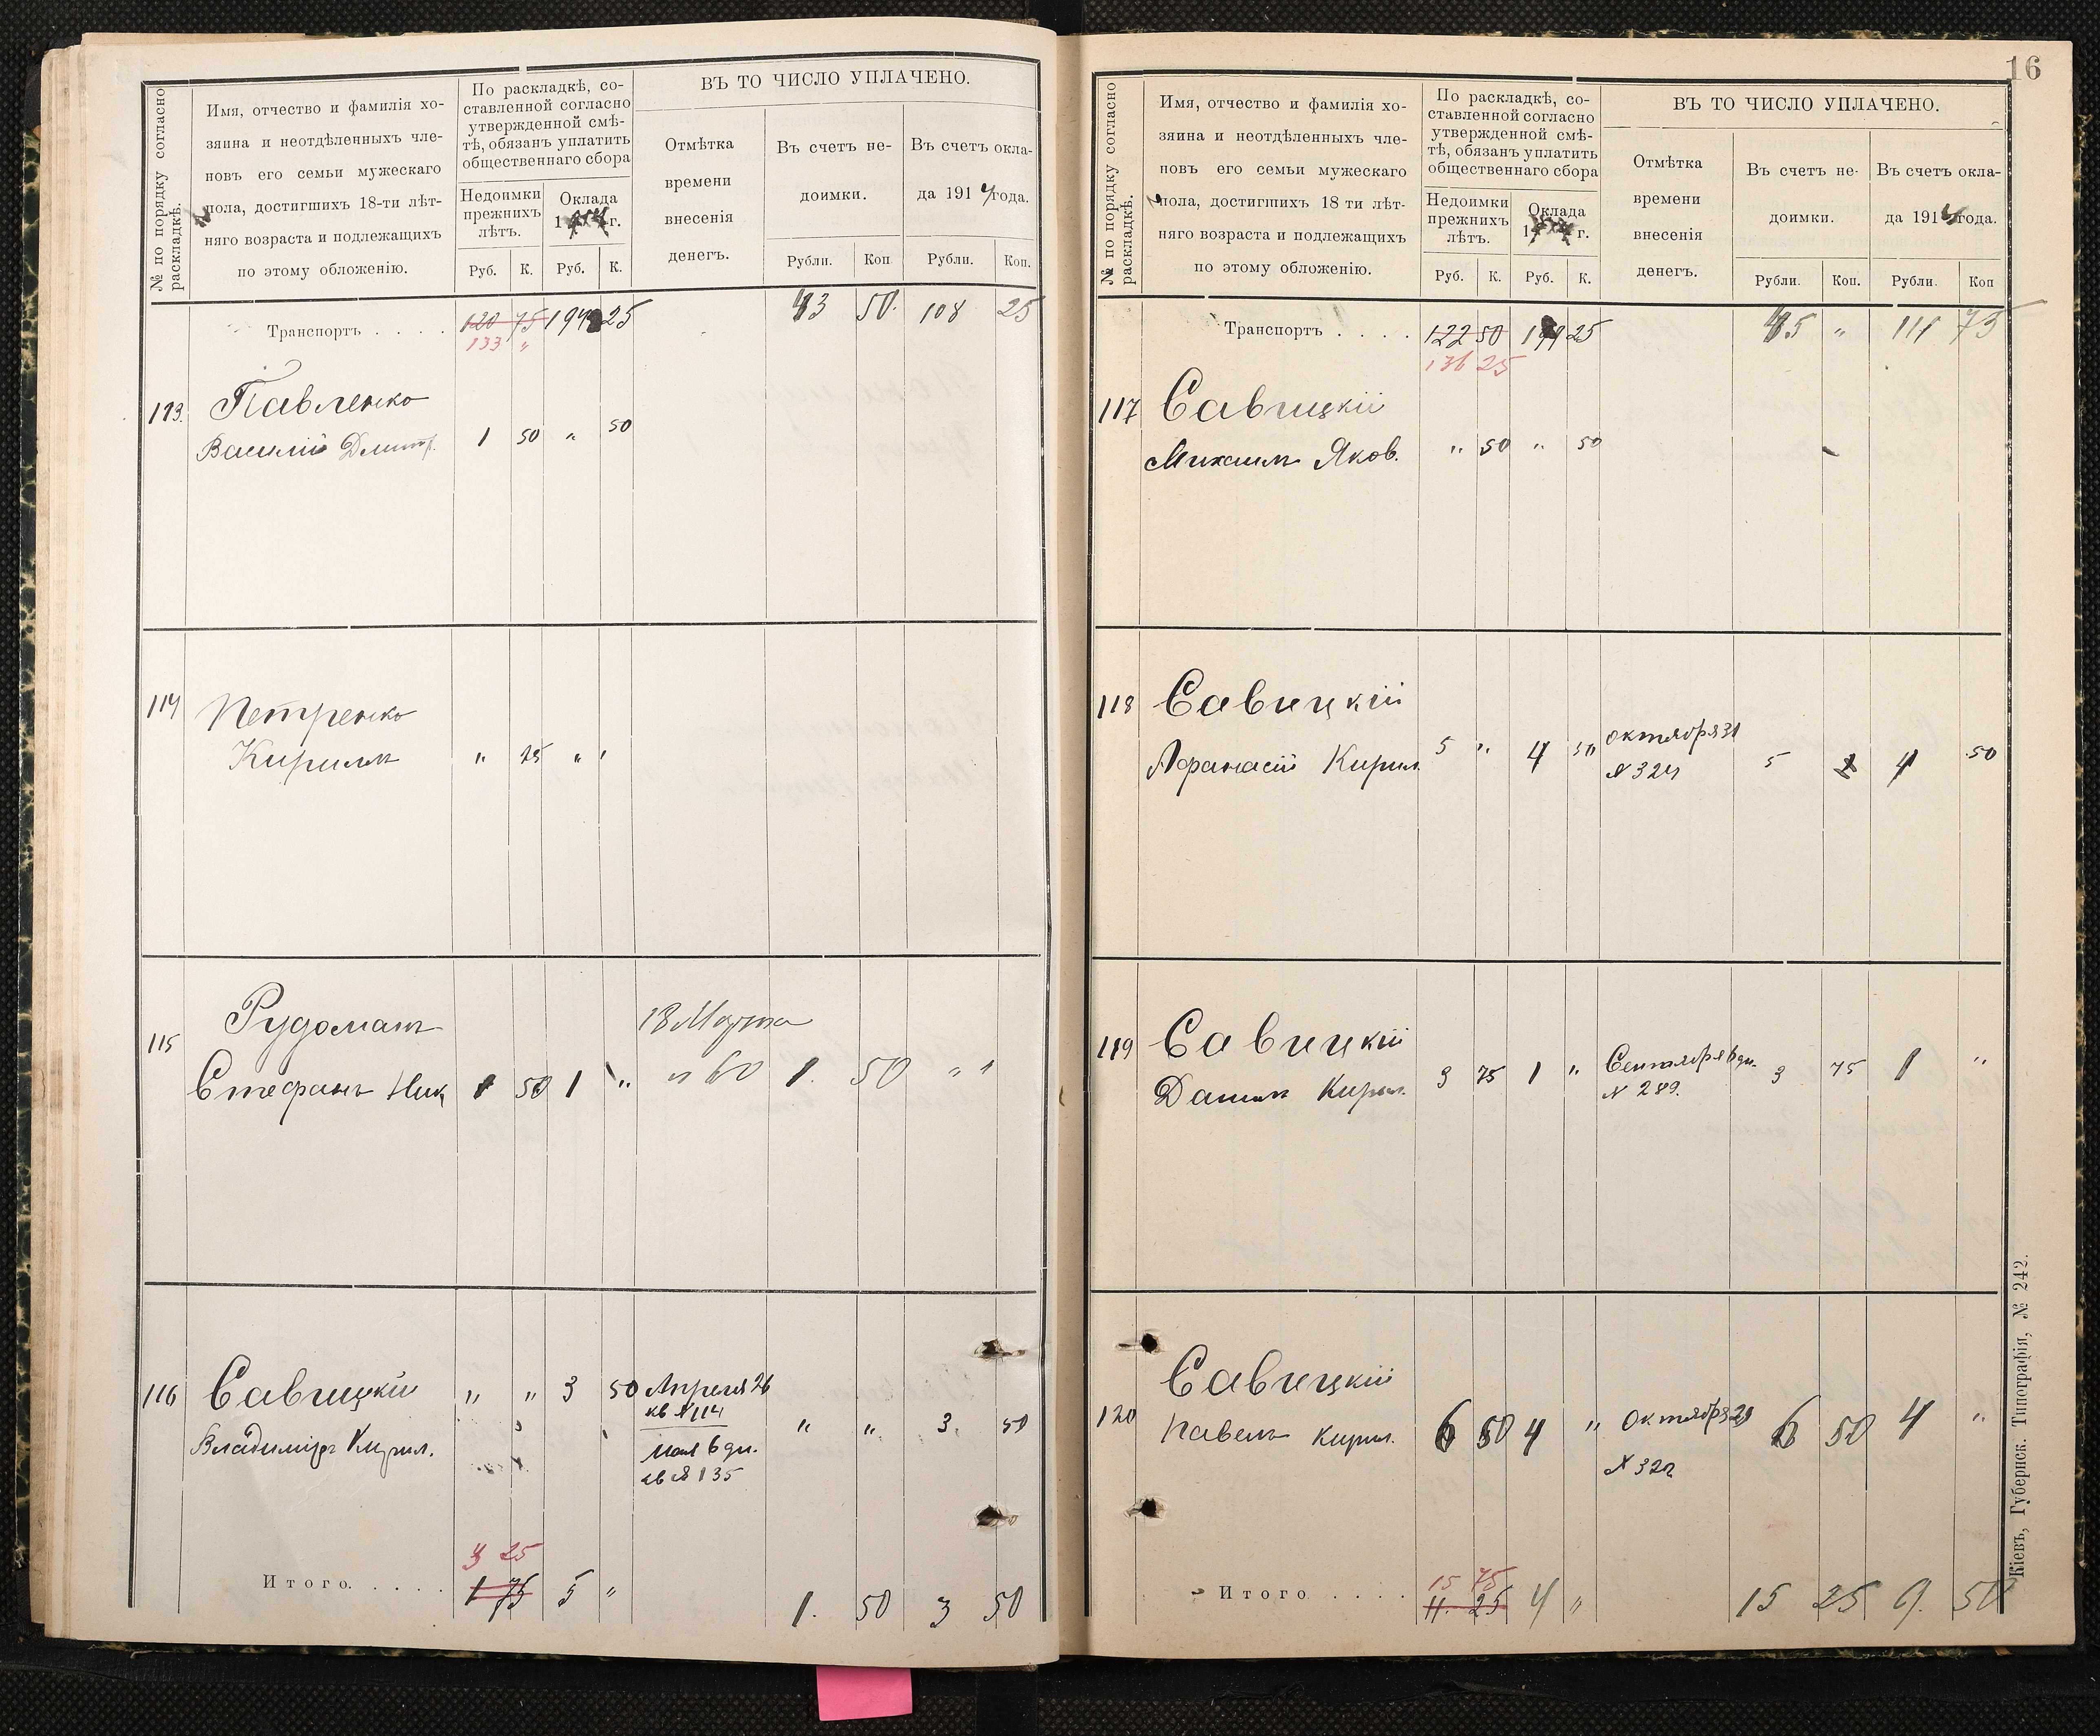 № по порядку согласно
раскладкѣ.
Имя, отчество и фамилія хо-
зяина и неотдѣленныхъ чле-
новъ его семьи мужескаго
пола, достигшихъ 18-ти лѣт-
няго возраста и подлежащихъ
по этому обложенію.
По раскладкѣ, со-
ставленной согласно
утвержденной смѣ-
тѣ, обязанъ уплатить
общественнаго сбора
Недоимки
прежнихъ
лѣтъ.
Оклада
г.
Руб. К. Руб. К.
ВЪ ТО ЧИСЛО УПЛАЧЕНО.
Отмѣтка
времени
внесенія
денегъ.
Въ счетъ не-
доимки.
Въ счетъ окла-
да 1914 года.
Рубли. Коп Рубли. Коп.
Транспортъ . . . . 120 75 25 43 50. 108 25
133 "
113. Павленко
Василій Дмитр. 1 50 " 50
114 Петренко
Кириллъ " 25 " "
115 Рудоманъ
18 Марта
Стефанъ Ник 1 50 1 " № 60 1. 50 " "
116 Савицкій " " 3 50 Апреля 26
кв №114
Владиміръ Кирил. " " 3. 50
Мая 6 дн.
кв № 135
3 25
Итого. . . . . 1 75 5 " 1. 50 3 50
16
№ по порядку согласно
раскладкѣ.
Имя, отчество и фамилія хо-
зяина и неотдѣленныхъ чле-
новъ его семьи мужескаго
пола, достигшихъ 18 ти лѣт-
няго возраста и подлежащихъ
по этому обложенію.
По раскладкѣ, со-
ставленной согласно
утвержденной смѣ-
тѣ, обязанъ уплатить
общественнаго сбора
Недоимки
прежнихъ
лѣтъ.
Оклада
г.
Руб. К. Руб. К.
ВЪ ТО ЧИСЛО УПЛАЧЕНО.
Отмѣтка
времени
внесенія
денегъ.
Въ счетъ не-
доимки.
Въ счетъ окла-
да 1914 года.
Рубли. Коп. Рубли. Коп
Транспортъ . . . . 122 50 25 45 " 111 75
136 25
117 Савицкій
Михаилъ Яков. " 50 " 50
118 Савицкій
Афанасій Кирил. 5 " 4 50 октября 31 5 4 50
№ 324
119 Савицкій
Данилъ Кирил. 3 75 1 " Сентября 6 дн. 3 75 1 "
№ 289.
120 Савицкій
Павелъ Кирил. 6 50 4 " октября 29 6 50 4 "
№ 322
15 75
Итого . . . . 11. 25 4 " 15 25 9. 50
Кіевъ, Губернск. Типографія, № 242.